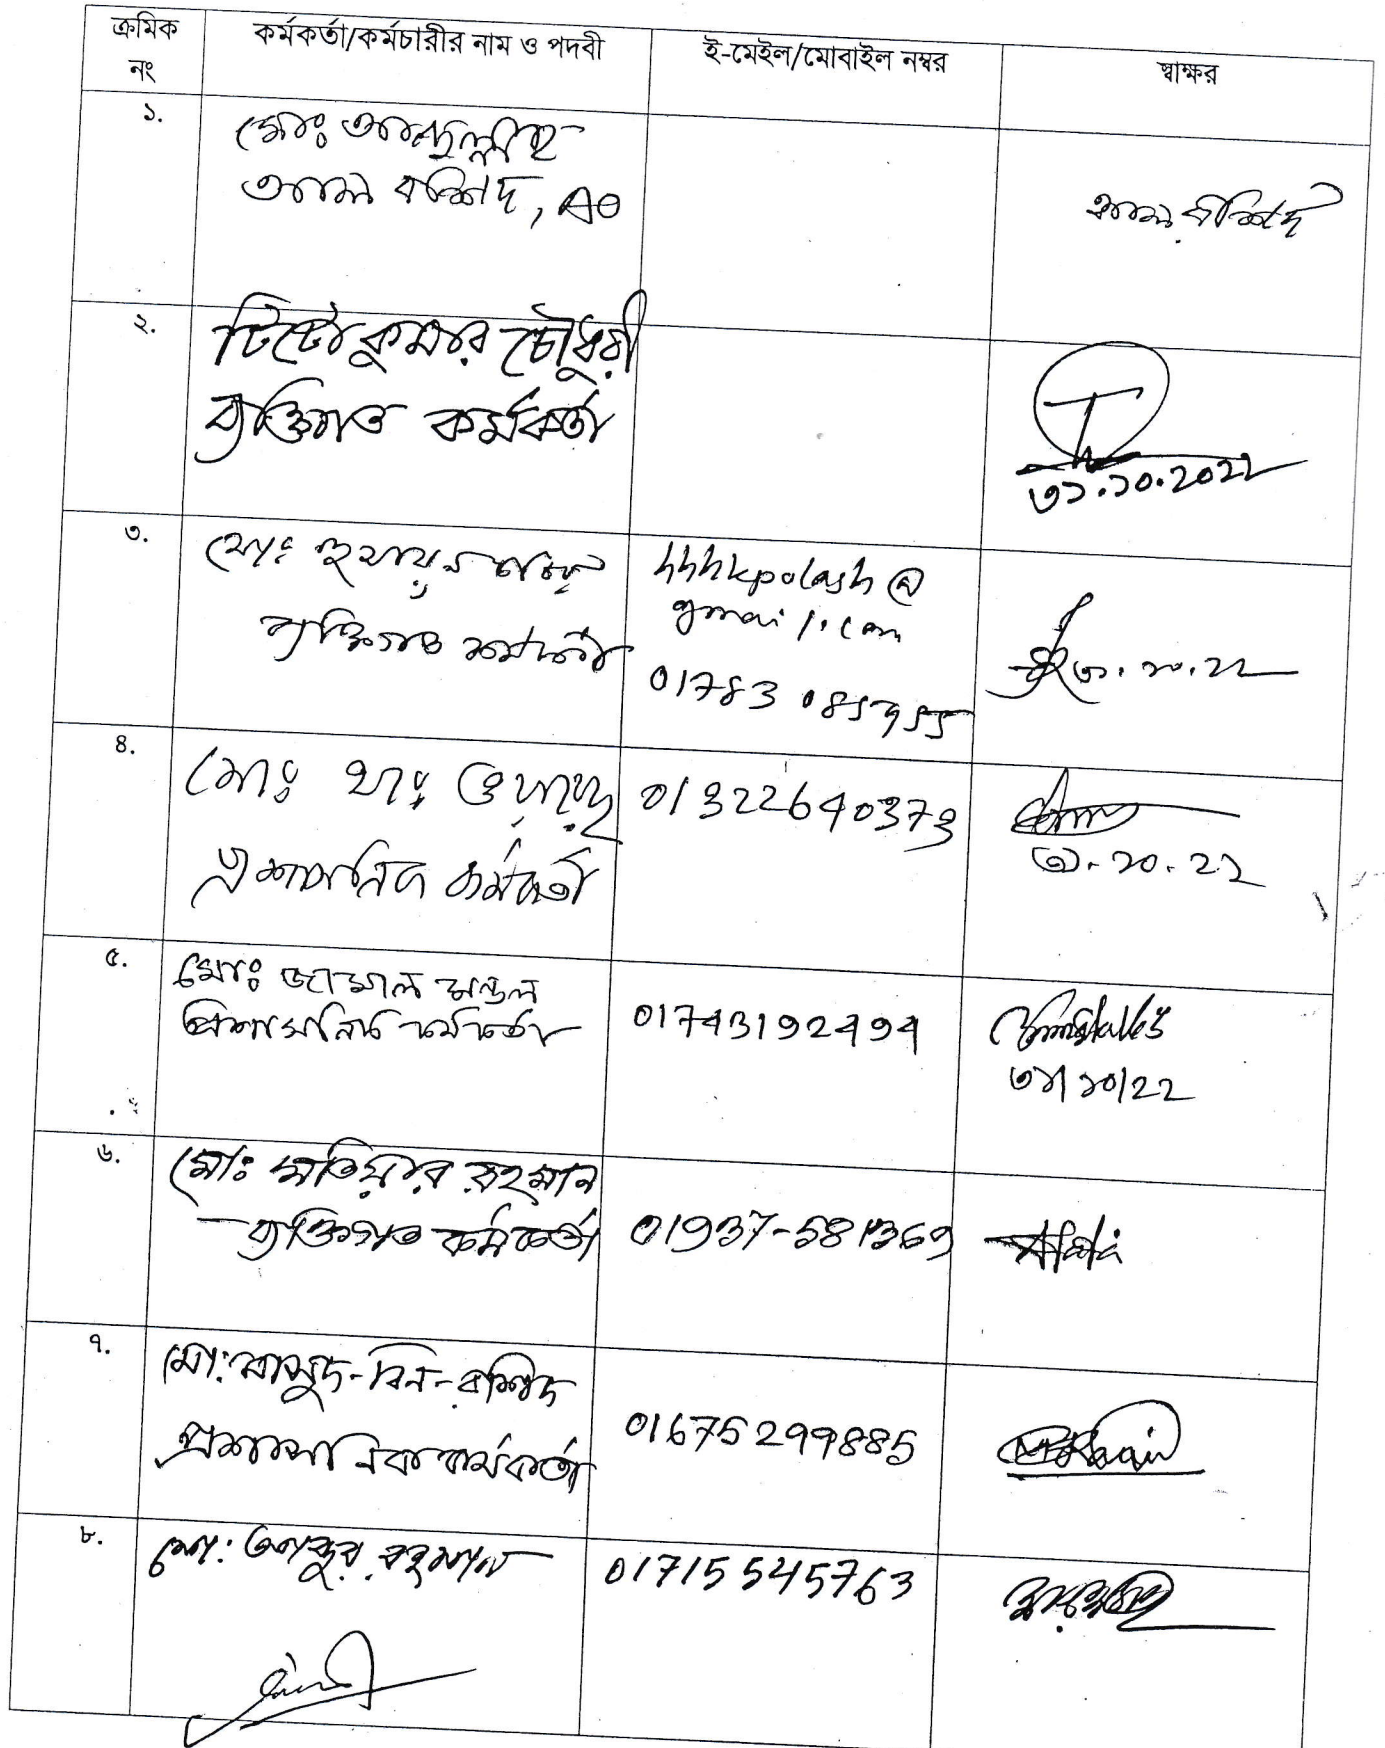 ক্রমিক নং কর্মকর্তা/কর্মচারীর নাম ও পদবী ই-মেইল/মোবাইল নম্বর স্বাক্ষর
১.
মোঃ আব্দুল্লাহ
আল রশিদ, AO
আল রশিদ
২.
টিটো কুমার চৌধুরী
ব্যক্তিগত কর্মকর্তা
৩১.১০.2022
৩.
মোঃ হুমায়ুন
ব্যক্তিগত কর্মকর্তা
hhhkpolash@
gmail.com
01783
৩১.১০.22
৪.
মোঃ
প্রশাসনিক কর্মকর্তা
01322640373
৩১.১০.22
৫.
মোঃ জামাল মন্ডল
প্রশাসনিক কর্মকর্তা
01743192494
৩১/১০/22
৬.
মোঃ মতিয়ার রহমান
ব্যক্তিগত কর্মকর্তা
01937-581369
৭.
মো: মাসুদ-বিন-রশিদ
প্রশাসনিক কর্মকর্তা
01675299885
৮.
মো: রহমান
01715545763